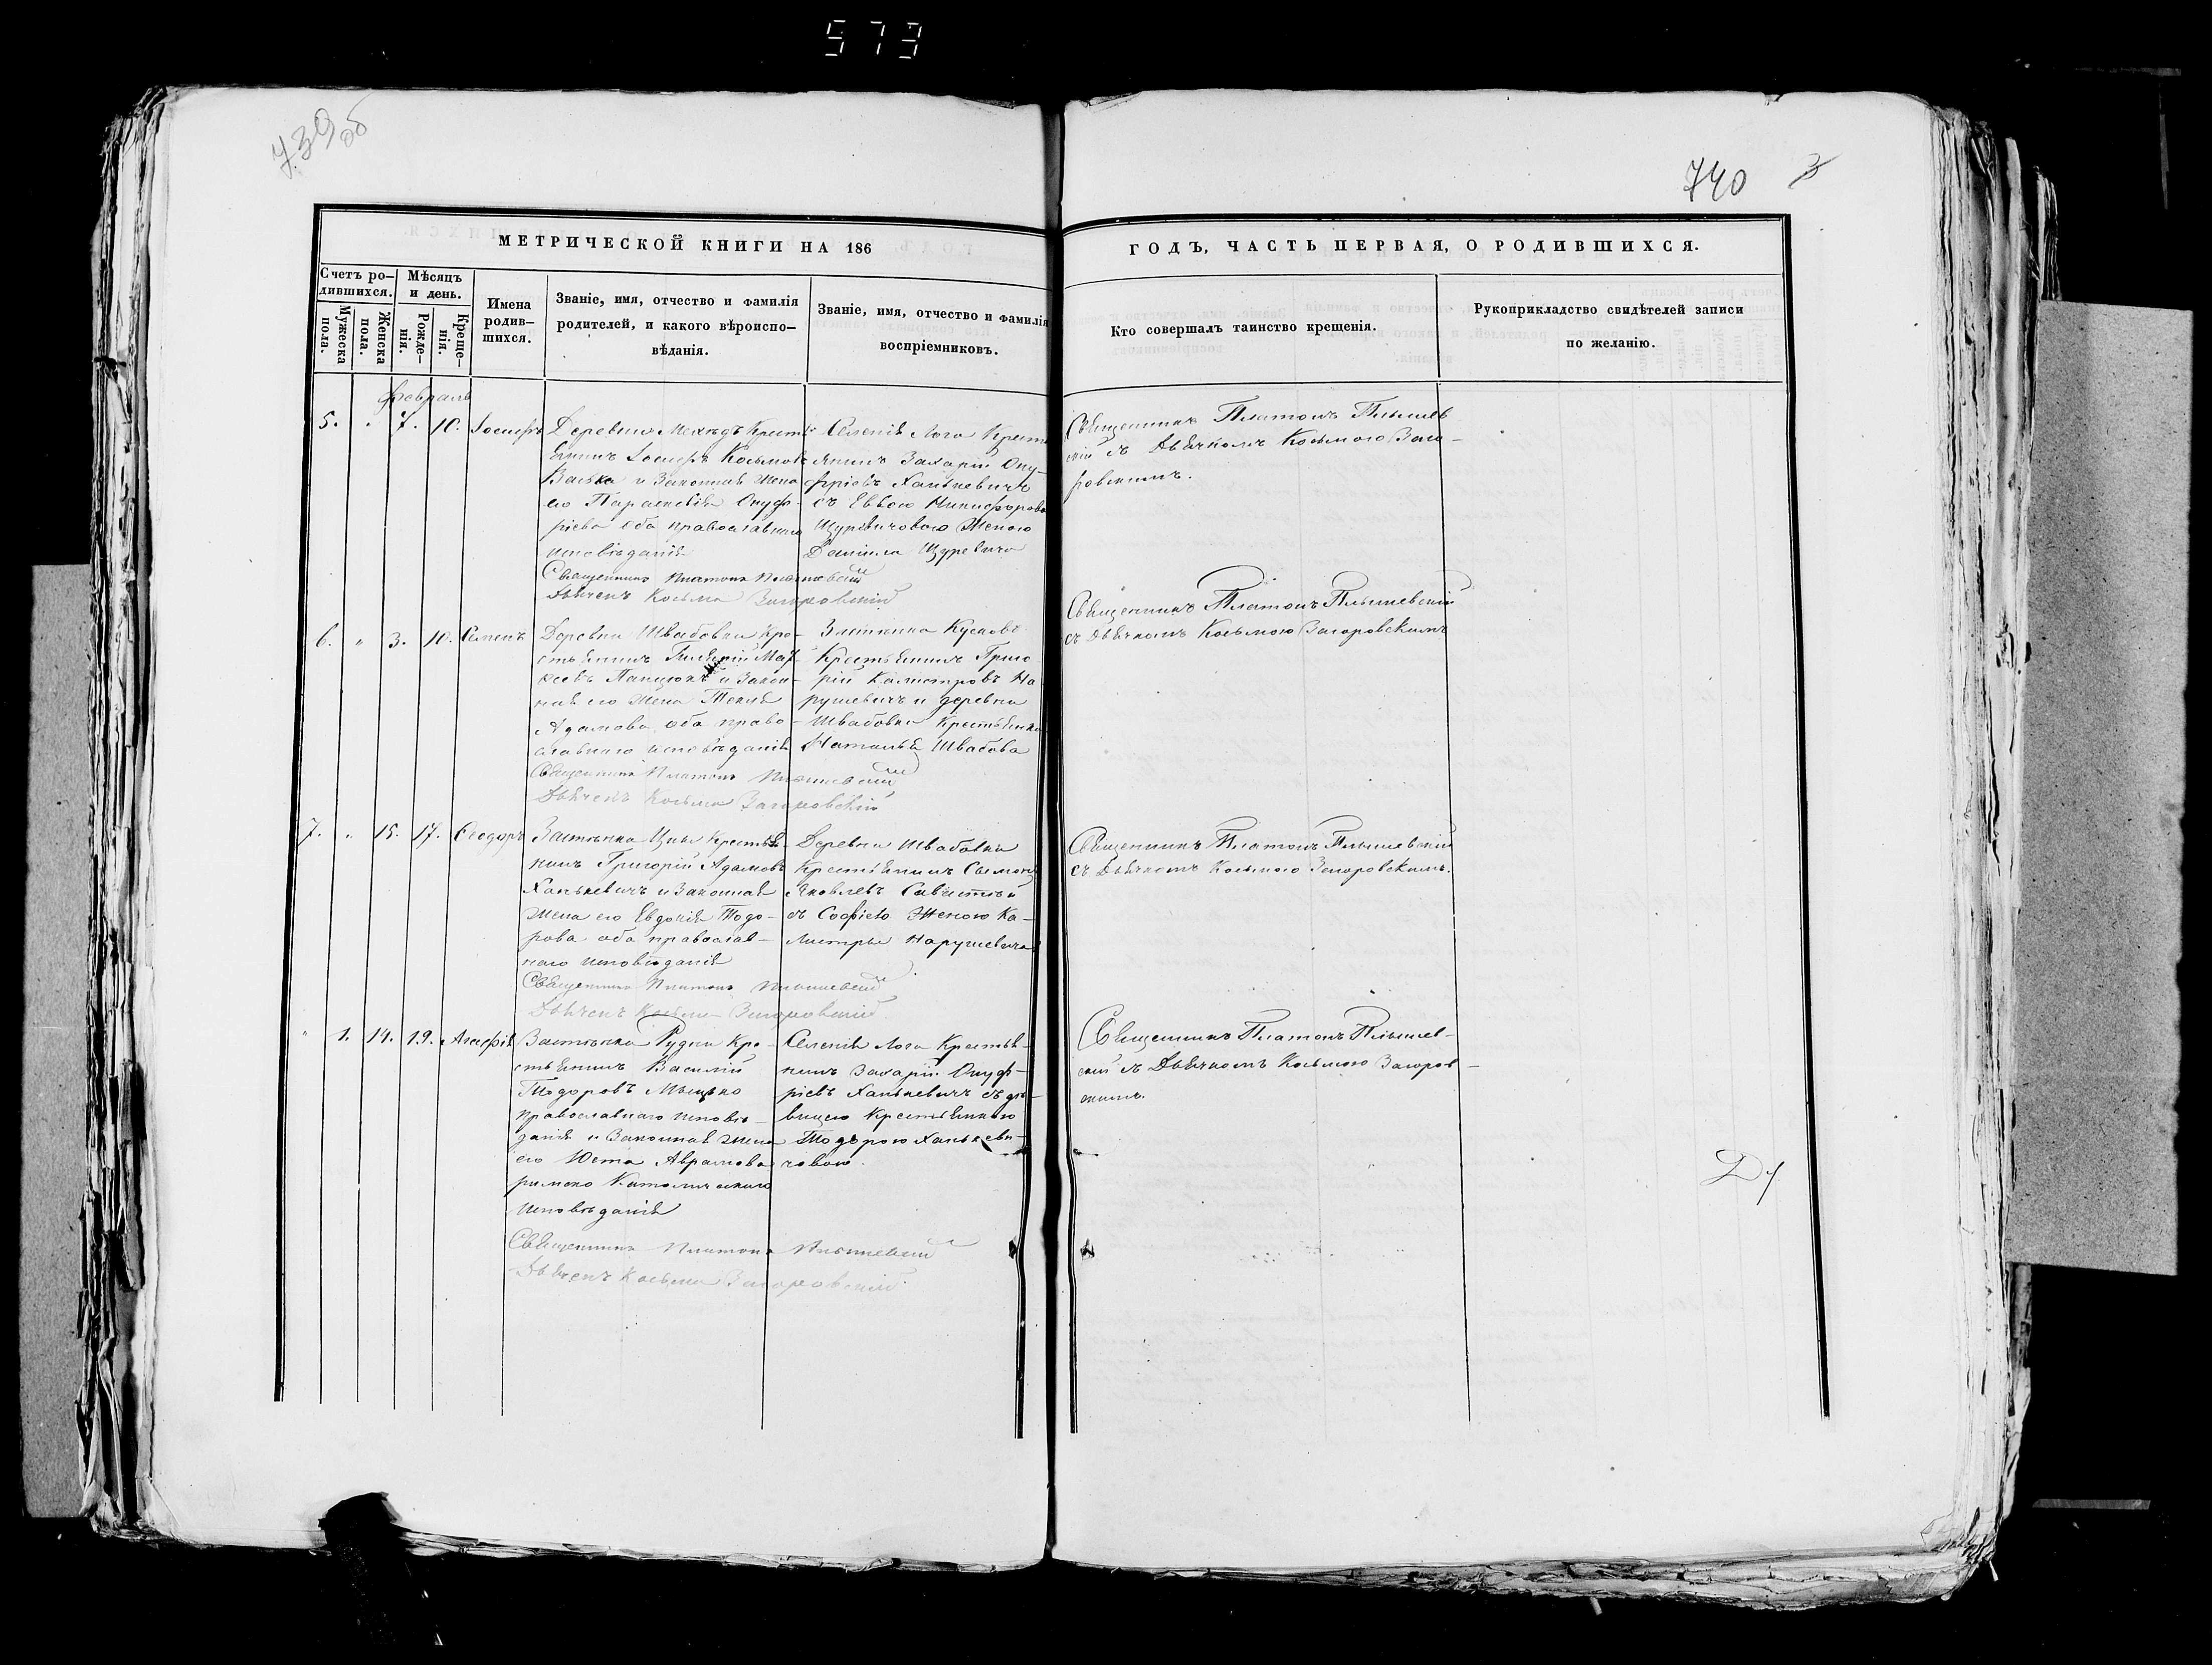 573
739об
740
3
МЕТРИЧЕСКОЙ КНИГИ НА 186
ГОДЪ, ЧАСТЬ ПЕРВАЯ, О РОДИВШИХСЯ.
Счетъ ро-
дившихся.
Мужеска
пола.
Женска
пола.
Мѣсяцъ
и день.
Рожде-
нія.
Креще-
нія.
Имена
родив-
шихся.
Званіе, имя, отчество и фамилія
родителей, и какого вѣроиспо-
вѣданія.
Званіе, имя, отчество и фамилія
воспріемниковъ.
Кто совершалъ таинство крещенія.
Рукоприкладство свидѣтелей записи
по желанію.
Февраль
5. " 7. 10. Іосифъ
Деревни Мехѣдъ Кресть
янинъ Іосифъ Косьмовъ
Васька и Законная жена
его Параскевія Онуф-
ріева оба православнаго
исповѣданія
Священникъ Платонъ
Дьячекъ Косьма Загоровскій
Селенія Лога Кресть
янинъ Захарій Ону-
фріевъ Ханькевичъ
съ Еввою Никифорова
Щуревичовою Женою
Даніила Щуревича
Священникъ Платонъ
скій съ Дьячкомъ Косьмою Заго-
ровскимъ.
6. " 3. 10. Семенъ
Деревни Швабовки Кре-
стьянинъ
Панцюкъ и Закон-
ная его жена Текля
Адамова оба право-
славнаго исповѣданія
Священникъ Платонъ
Дьячекъ Косьма Загоровскій
Застѣнка
Крестьянинъ Григо-
рій Калистровъ На
рушевичъ и деревни
Швабовки Крестьянка
Наталья Швабова
Священникъ Платонъ
съ Дьячкомъ Косьмою Загоровскимъ
7. " 15. 17. Ѳеодоръ
Застѣнка Крестья
нинъ Григорій Адамовъ
Ханькевичъ и Законная
жена его Евдокія Тодо-
рова оба православ-
наго исповѣданія
Священникъ Платонъ
Дьячекъ Косьма Загоровскій
Деревни Швабовки
Крестьянинъ Сымонъ
Яковлевъ
съ Софіею Женою Ка-
листры Нарушевича
Священникъ Платонъ
съ Дьячкомъ Косьмою Загоровскимъ.
" 1. 14. 19. Агафія
Застѣнка Рудни Кре-
стьянинъ Василій
Тодоровъ
православнаго исповѣ-
данія и Законная жена
его Юста Аврамова
римско Католическаго
исповѣданія
Священникъ Платонъ
Дьячекъ Косьма Загоровскій
Селенія Лога Крестья-
нинъ Захарій Онуф-
ріевъ Ханькевичъ съ дѣ-
вицею Крестьянкою
Тодорою Ханькеви-
човою.
Священникъ Платонъ
скій съ Дьячкомъ Косьмою Загоров-
скимъ.